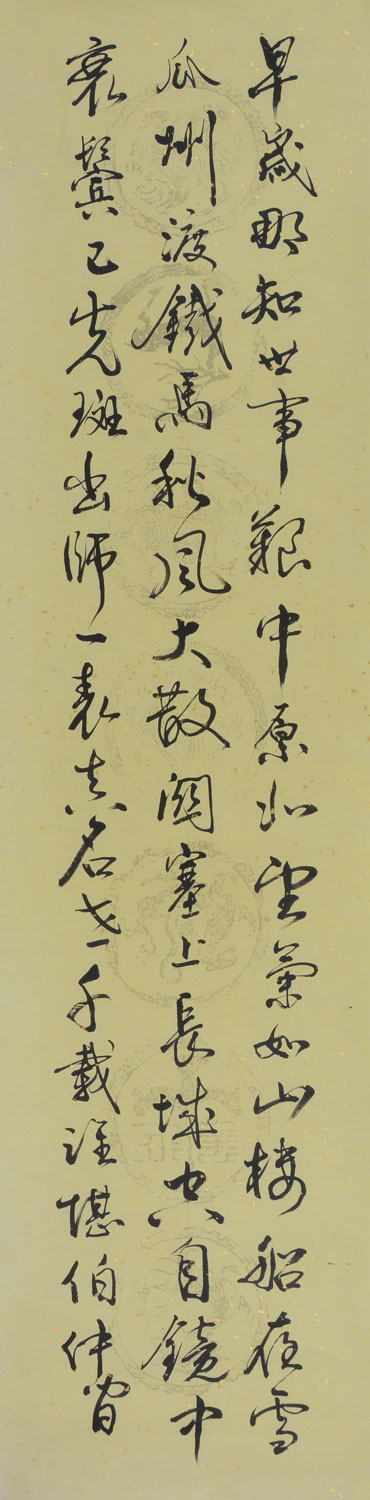 早歲那知世事艱中原北望氣如山樓船夜雪
瓜州渡鐵馬秋風大散關塞上長城空自鏡中
衰鬢已先斑出師一表真名世千載誰堪伯仲間